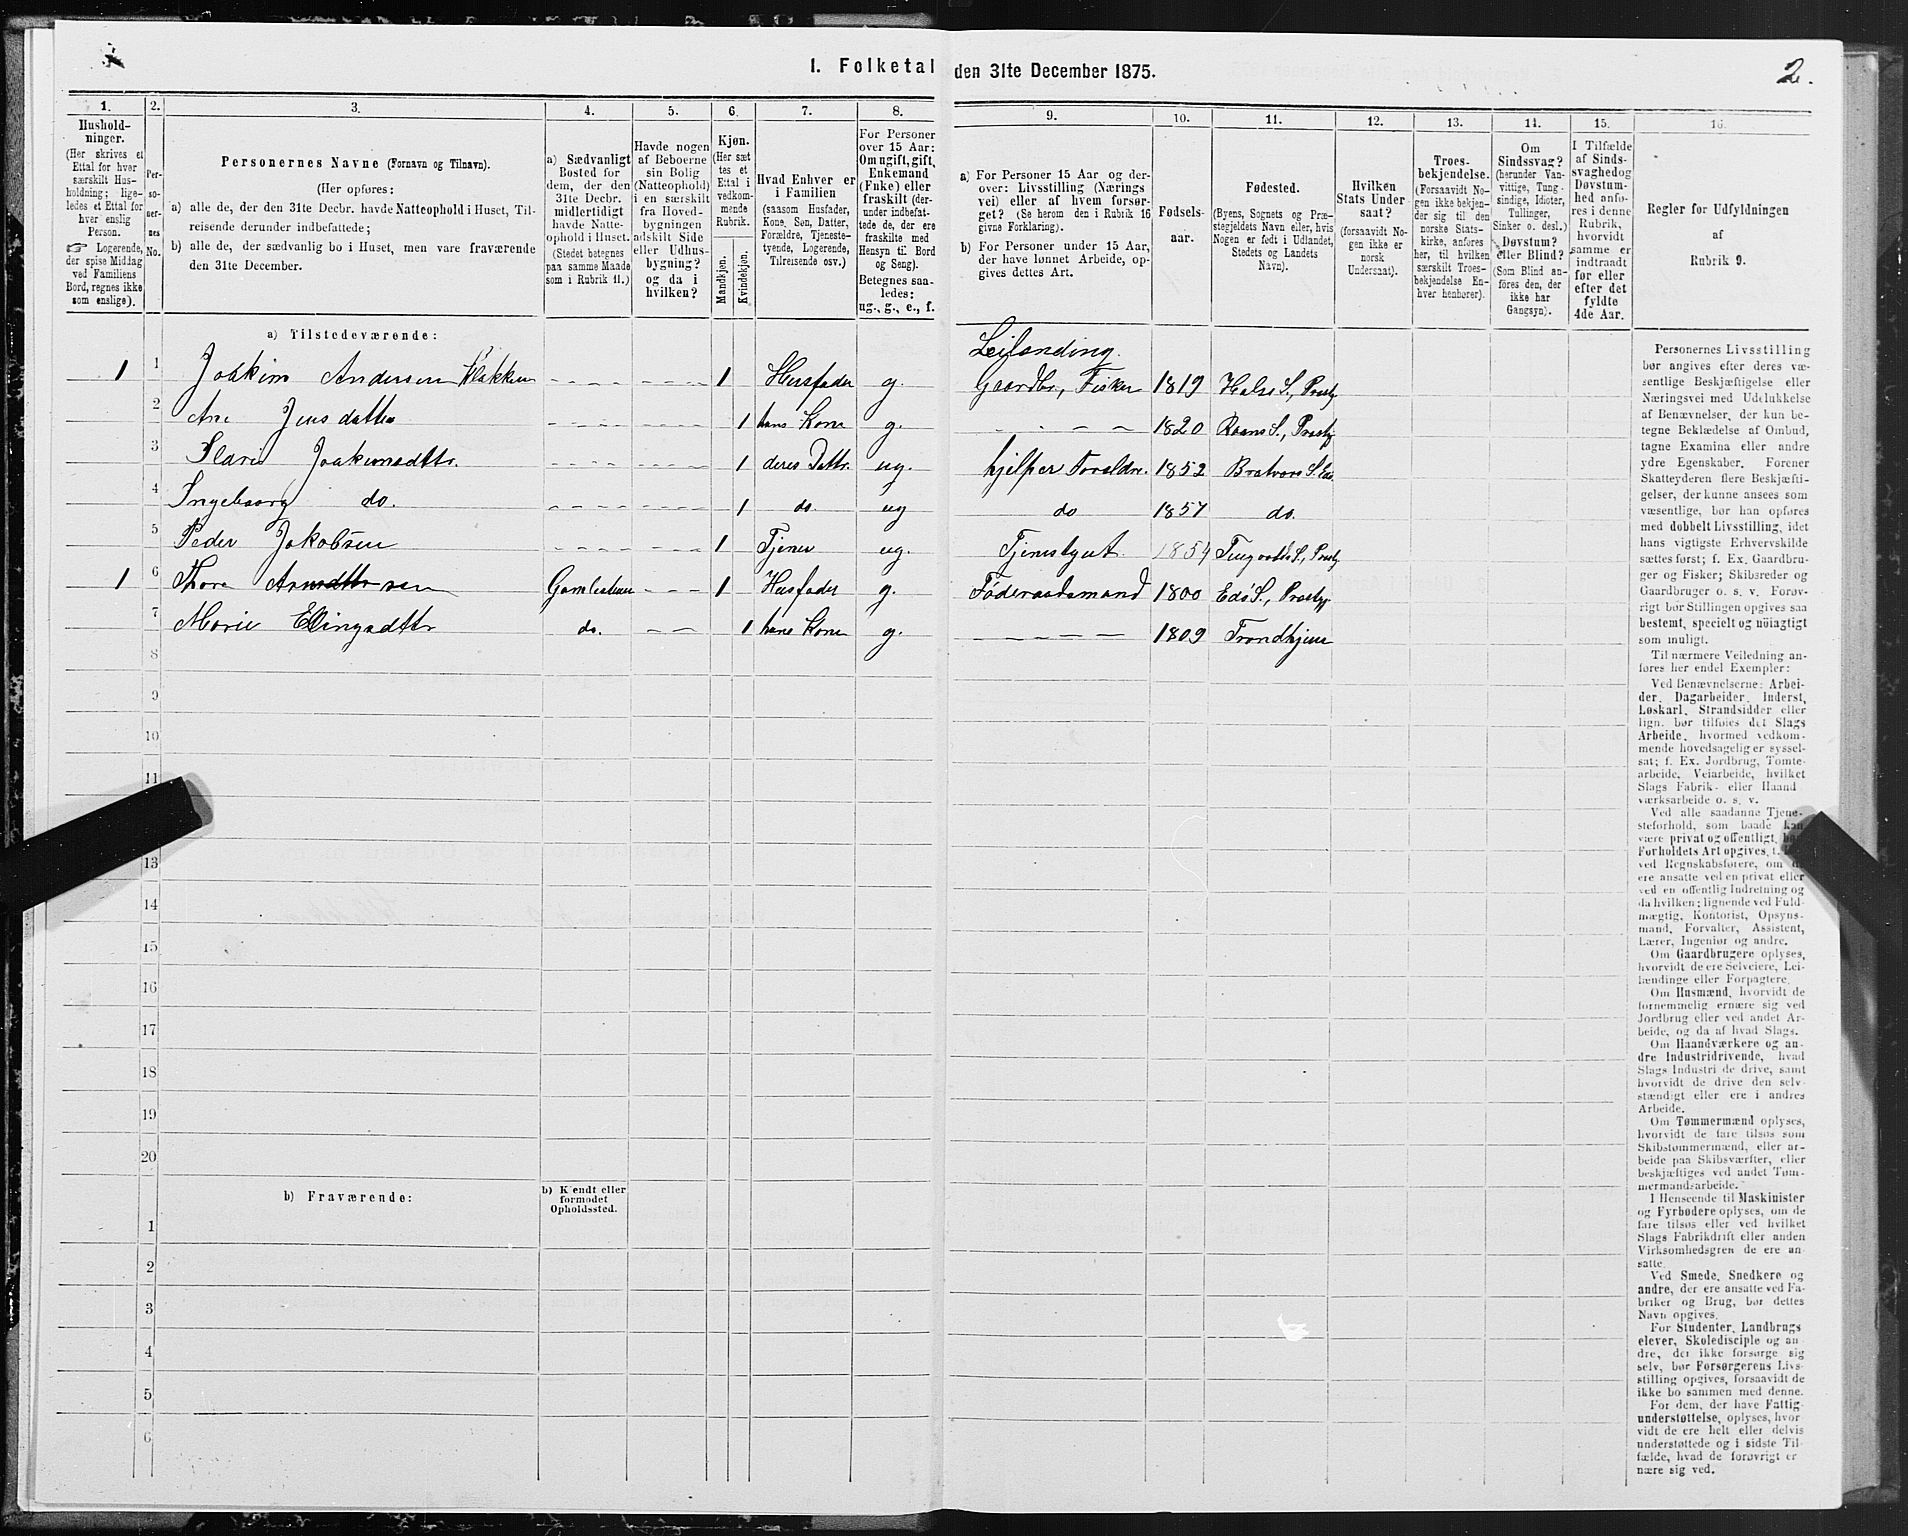 1. Folketal den 31te December 1875.
2.
1. 2. 3. 4. 5. 6. 7. 8. 9. 10. 11. 12. 13. 14. 15. 16.
Hushold-
ninger.
(Her skrives et
Ettal for hver
særskilt Hus-
holdning; lige-
ledes et Ettal for
hver enslig
Person.
☞ Logerende,
der spise Middag
ved Familiens
Bord, regnes ikke
som enslige).
Per-
so-
ner-
nes
No.
Personernes Navne (Fornavn og Tilnavn).
(Her opføres:
a) alle de, der den 31te Decbr. havde Natteophold i Huset, Til-
reisende derunder indbefattede;
b) alle de, der sædvanlig bo i Huset, men vare fraværende
den 31te December.
a) Sædvanligt
Bosted for
dem, der den
31te Decbr.
midlertidigt
havde Natte-
ophold i Huset.
(Stedet betegnes
paa samme Maade
som i Rubrik 11.)
Havde nogen
af Beboerne
sin Bolig
(Natteophold)
i en særskilt
fra Hoved-
bygningen
adskilt Side
eller Udhus-
bygning?
og da i
hvilken?
Kjøn.
(Her sæt
tes et
Ettal i
vedkom-
mende
Rubrik.
Mandkjøn.
Kvindekjøn.
Hvad Enhver er
i Familien
(saasom Husfader,
Kone, Søn, Datter,
Forældre, Tjeneste-
tyende, Logerende,
Tilreisende osv.)
For Personer
over 15 Aar:
Om ugift, gift,
Enkemand
(Enke) eller
fraskilt (der-
under indbefat-
tede de, der ere
fraskilte med
Hensyn til Bord
og Seng).
Betegnes saa-
ledes:
ug., g., e., f.
a) For Personer 15 Aar og der-
over: Livsstilling (Nærings
vei) eller af hvem forsør-
get? (Se herom den i Rubrik 16
givne Forklaring).
b) For Personer under 15 Aar,
der have lønnet Arbeide, op-
gives dettes Art.
Fødsels-
aar.
Fødested.
(Byens, Sognets og Præ-
stegjeldets Navn eller, hvis
Nogen er født i Udlandet,
Stedets og Landets
Navn).
Hvilken
Stats Under
saat?
(forsaavidt No-
gen ikke er
norsk
Undersaat).
Troes-
bekjendelse.
(Forsaavidt No-
gen ikke bekjen-
der sig til den
norske Stats-
kirke, anføres
her, til hvilken
særskilt Troes-
bekjendelse En-
hver henhører).
Om
Sindssvag?
(herunder Van-
vittige, Tung-
sindige, Idioter,
Tullinger,
Sinker o. desl.)
Døvstum?
eller Blind?
(Som Blind an-
føres den, der
ikke har
Gangsyn).
I Tilfælde
af Sinds-
svaghed og
Døvstum-
hed anfø-
res i denne
Rubrik,
hvorvidt
samme er
indtraadt
før eller
efter det
fyldte
4de Aar.
Regler for Udfyldningen
af
Rubrik 9.
a) Tilstedeværende:
Leilænding.
1 1 Joakim Andersen Klakken 1 Husfader g. Gaardbr, Fisker 1819 Halse S., Præstg.
2 Ane Jensdatter 1 hans Kone g. 1820 S., Præstg.
3 Joakimsdttr. 1 deres Dattr. ug. hjelper Forældre. 1852 S. Edø
4 Ingeborg do. 1 do. ug do 1857 do.
5 Peder Jakobsen 1 Tjener ug. Tjenestgut. 1854 S., Præstg
1 6 Thore 1 Husfader g. Føderaadsmand 1800 Edø S., Præstg.
7 Marie Ellingsdttr do. 1 hans Kone g. 1809 Trondhjem
8
9
10
11
13
14
15
16
17
18
19
20
b) Fraværende:
b) Kjendt eller
formodet
Opholdssted.
1
2
3
4
5
6
Personernes Livsstilling
bør angives efter deres væ-
sentlige Beskjæftigelse eller
Næringsvei med Udelukkelse
af Benævnelser, der kun be-
tegne Beklædelse af Ombud,
tagne Examina eller andre
ydre Egenskaber. Forener
Skatteyderen flere Beskjæfti-
gelser, der kunne ansees som
væsentlige, bør han opføres
med dobbelt Livsstilling, idet
hans vigtigste Erhvervskilde
sættes først; f. Ex. Gaardbru-
ger og Fisker; Skibsreder og
Gaardbruger o. s. v. Forøv-
rigt bør Stillingen opgives saa
bestemt, specielt og nøiagtigt
som muligt.
Til nærmere Veiledning an-
føres her endel Exempler:
Ved Benævnelserne: Arbei-
der, Dagarbeider, Inderst,
Løskarl, Strandsidder eller
lign. bør tilføies det Slags
Arbeide, hvormed vedkom-
mende hovedsagelig er syssel-
sat; f. Ex. Jordbrug, Tomte-
arbeide, Veiarbeide, hvilket
Slags Fabrik- eller Haand
værksarbeide o. s. v.
Ved alle saadanne Tjene-
steforhold, som baade kan
være privat og offentligt, bør
Forholdets Art opgives,
ved Regnskabsførere, om
ere ansatte ved en privat eller
ved en offentlig Indretning og
da hvilken; lignende ved Fuld-
mægtig, Kontorist, Opsyns-
mand, Forvalter, Assistent,
Lærer, Ingeniør og andre.
Om Gaardbrugere oplyses,
hvorvidt de ere Selveiere, Lei-
lændinge eller Forpagtere.
Om Husmænd, hvorvidt de
fornemmelig ernære sig ved
Jordbrug eller ved andet Ar-
beide, og da af hvad Slags.
Om Haandværkere og an-
dre Industridrivende, hvad
Slags Industri de drive, samt
hvorvidt de drive den selv-
stændigt eller ere i andres
Arbeide.
Om Tømmermænd oplyses,
hvorvidt de fare tilsøs som
Skibstømmermænd, eller ar-
beide paa Skibsværfter, eller
beskjæftiges ved andet Tøm-
mermandsarbeide.
I Henseende til Maskinister
og Fyrbødere oplyses, om de
fare tilsøs eller ved hvilket
Slags Fabrikdrift eller anden
Virksomhedsgren de ere an-
satte.
Ved Smede, Snedkere og
andre, der ere ansatte ved Fa-
briker og Brug, bør dettes
Navn opgives.
For Studenter, Landbrugs
elever, Skoledisciple og an
dre, der ikke forsørge sig
selv, bør Forsørgerens Livs-
stilling opgives, forsaavidt de
ikke bo sammen med denne.
For dem, der have Fattig-
understøttelse, oplyses, hvor-
vidt de ere helt eller delvis
understøttede og i sidste Til-
fælde, hvad de forøvrigt er-
nære sig ved.